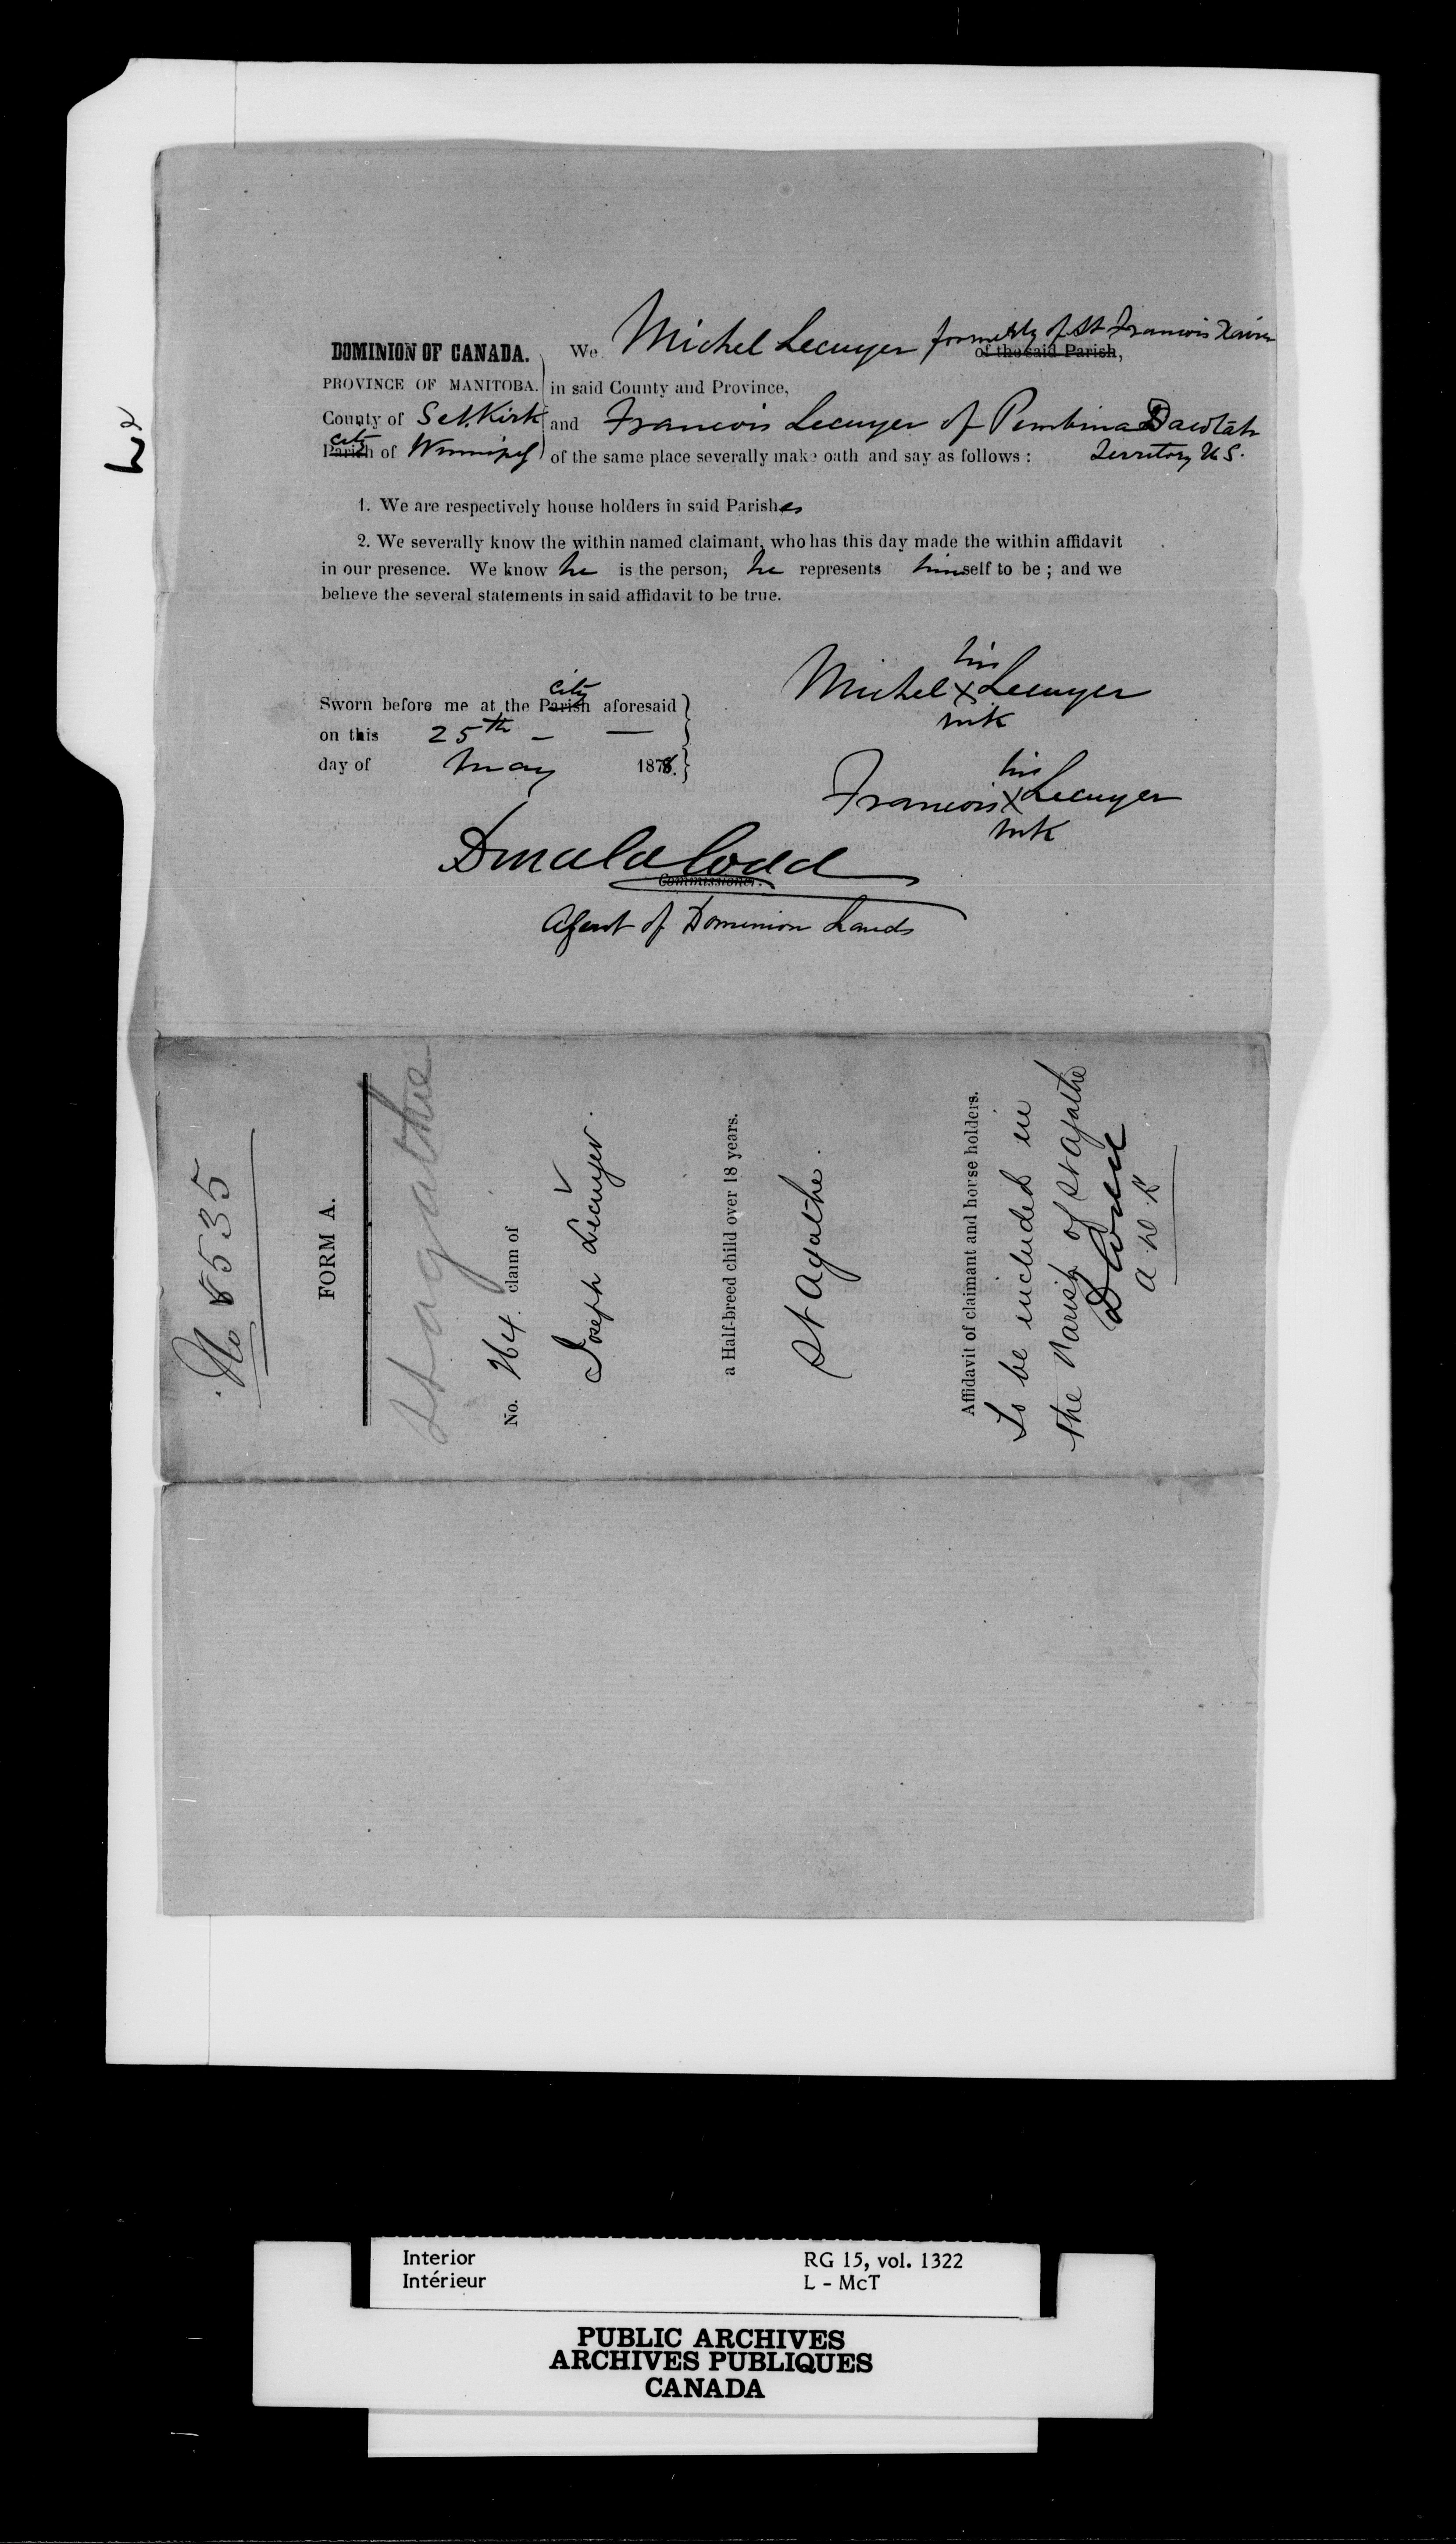 DOMINION OF CANADA. We Michel Lecuyer formerly of St Francois Xavier of the said Parish,
PROVINCE OF MANITOBA. in said County and Province,
County of Selkirk and Francois Lecuyer of Pembina Dacotah
city
Parish of Winnipeg of the same place severally make oath and say as follows : Territory U S.
1. We are respectively house holders in said Parishes
2. We severally know the within named claimant, who has this day made the within affidavit
in our presence. We know he is the person, he represents himself to be ; and we
believe the several statements in said affidavit to be true.
his
Michel X Lecuyer
mk
city
Sworn before me at the Parish aforesaid
on this 25th
day of May 1878.
his
Francois X Lecuyer
mk
Donald Codd
Commissioner.
Agent of Dominion Lands
No 8535
FORM A.
St Agathe
No. 264 claim of
Joseph Lecuyer.
a Half-breed child over 18 years.
St Agathe.
Affidavit of claimant and house holders.
To be included in
the Parish of St Agathe
D Codd
Interior RG 15, vol. 1322
Intérieur L - McT
PUBLIC ARCHIVES
ARCHIVES PUBLIQUES
CANADA